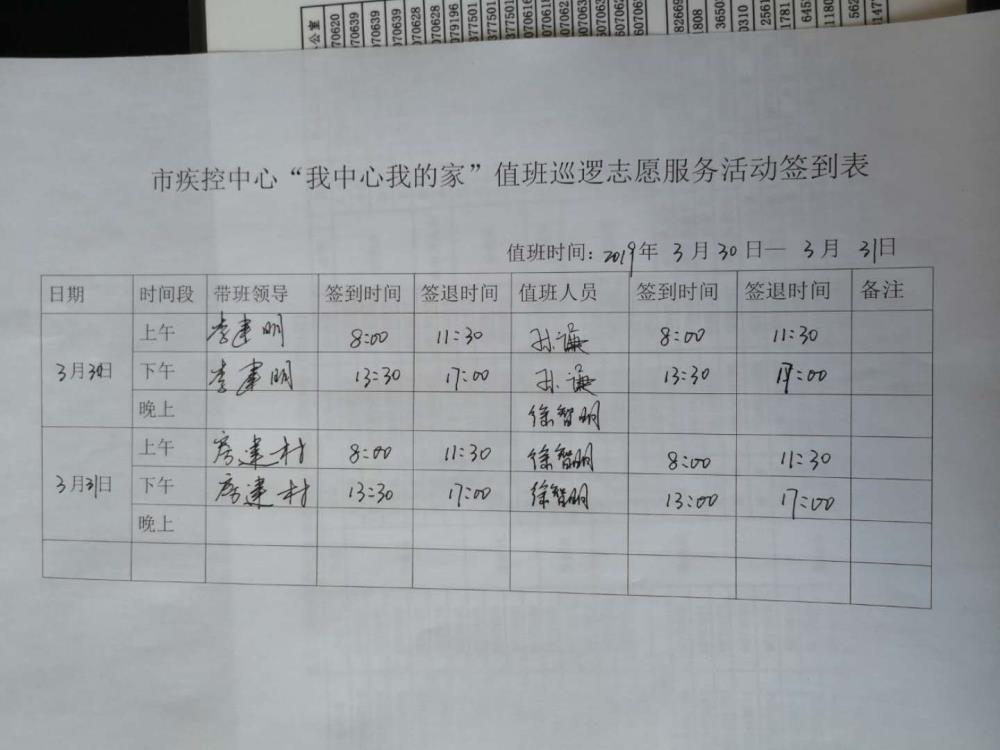 公室
070620
070639
070639
070628
070628
079196
377501
377501
市疾控中心“我中心我的家”值班巡逻志愿服务活动签到表
值班时间：2019年 3月30日— 3月 31日
日期 时间段 带班领导 签到时间 签退时间 值班人员 签到时间 签退时间 备注
3月30日 上午 李建明 8:00 11:30 孙谦 8:00 11:30
下午 李建明 13:30 17:00 孙谦 13:30 17:00
晚上 徐智明
3月31日 上午 房建村 8:00 11:30 徐智明 8:00 11:30
下午 房建村 13:30 17:00 徐智明 13:00 17:00
晚上